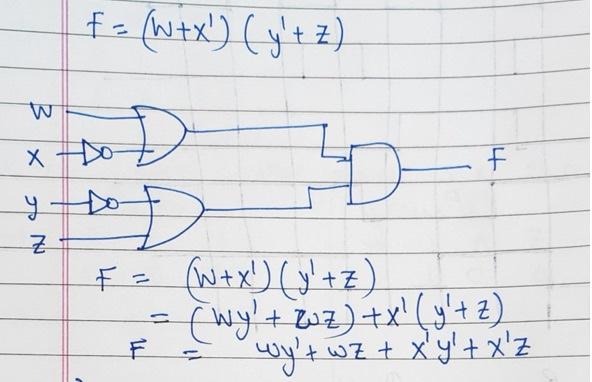 F = (W+x') (y'+z)
W
x
F
y
z
F = (W+x') (y'+z)
= (Wy' + wz) + x' (y'+z)
F = wy' + wz + x'y' + x'z